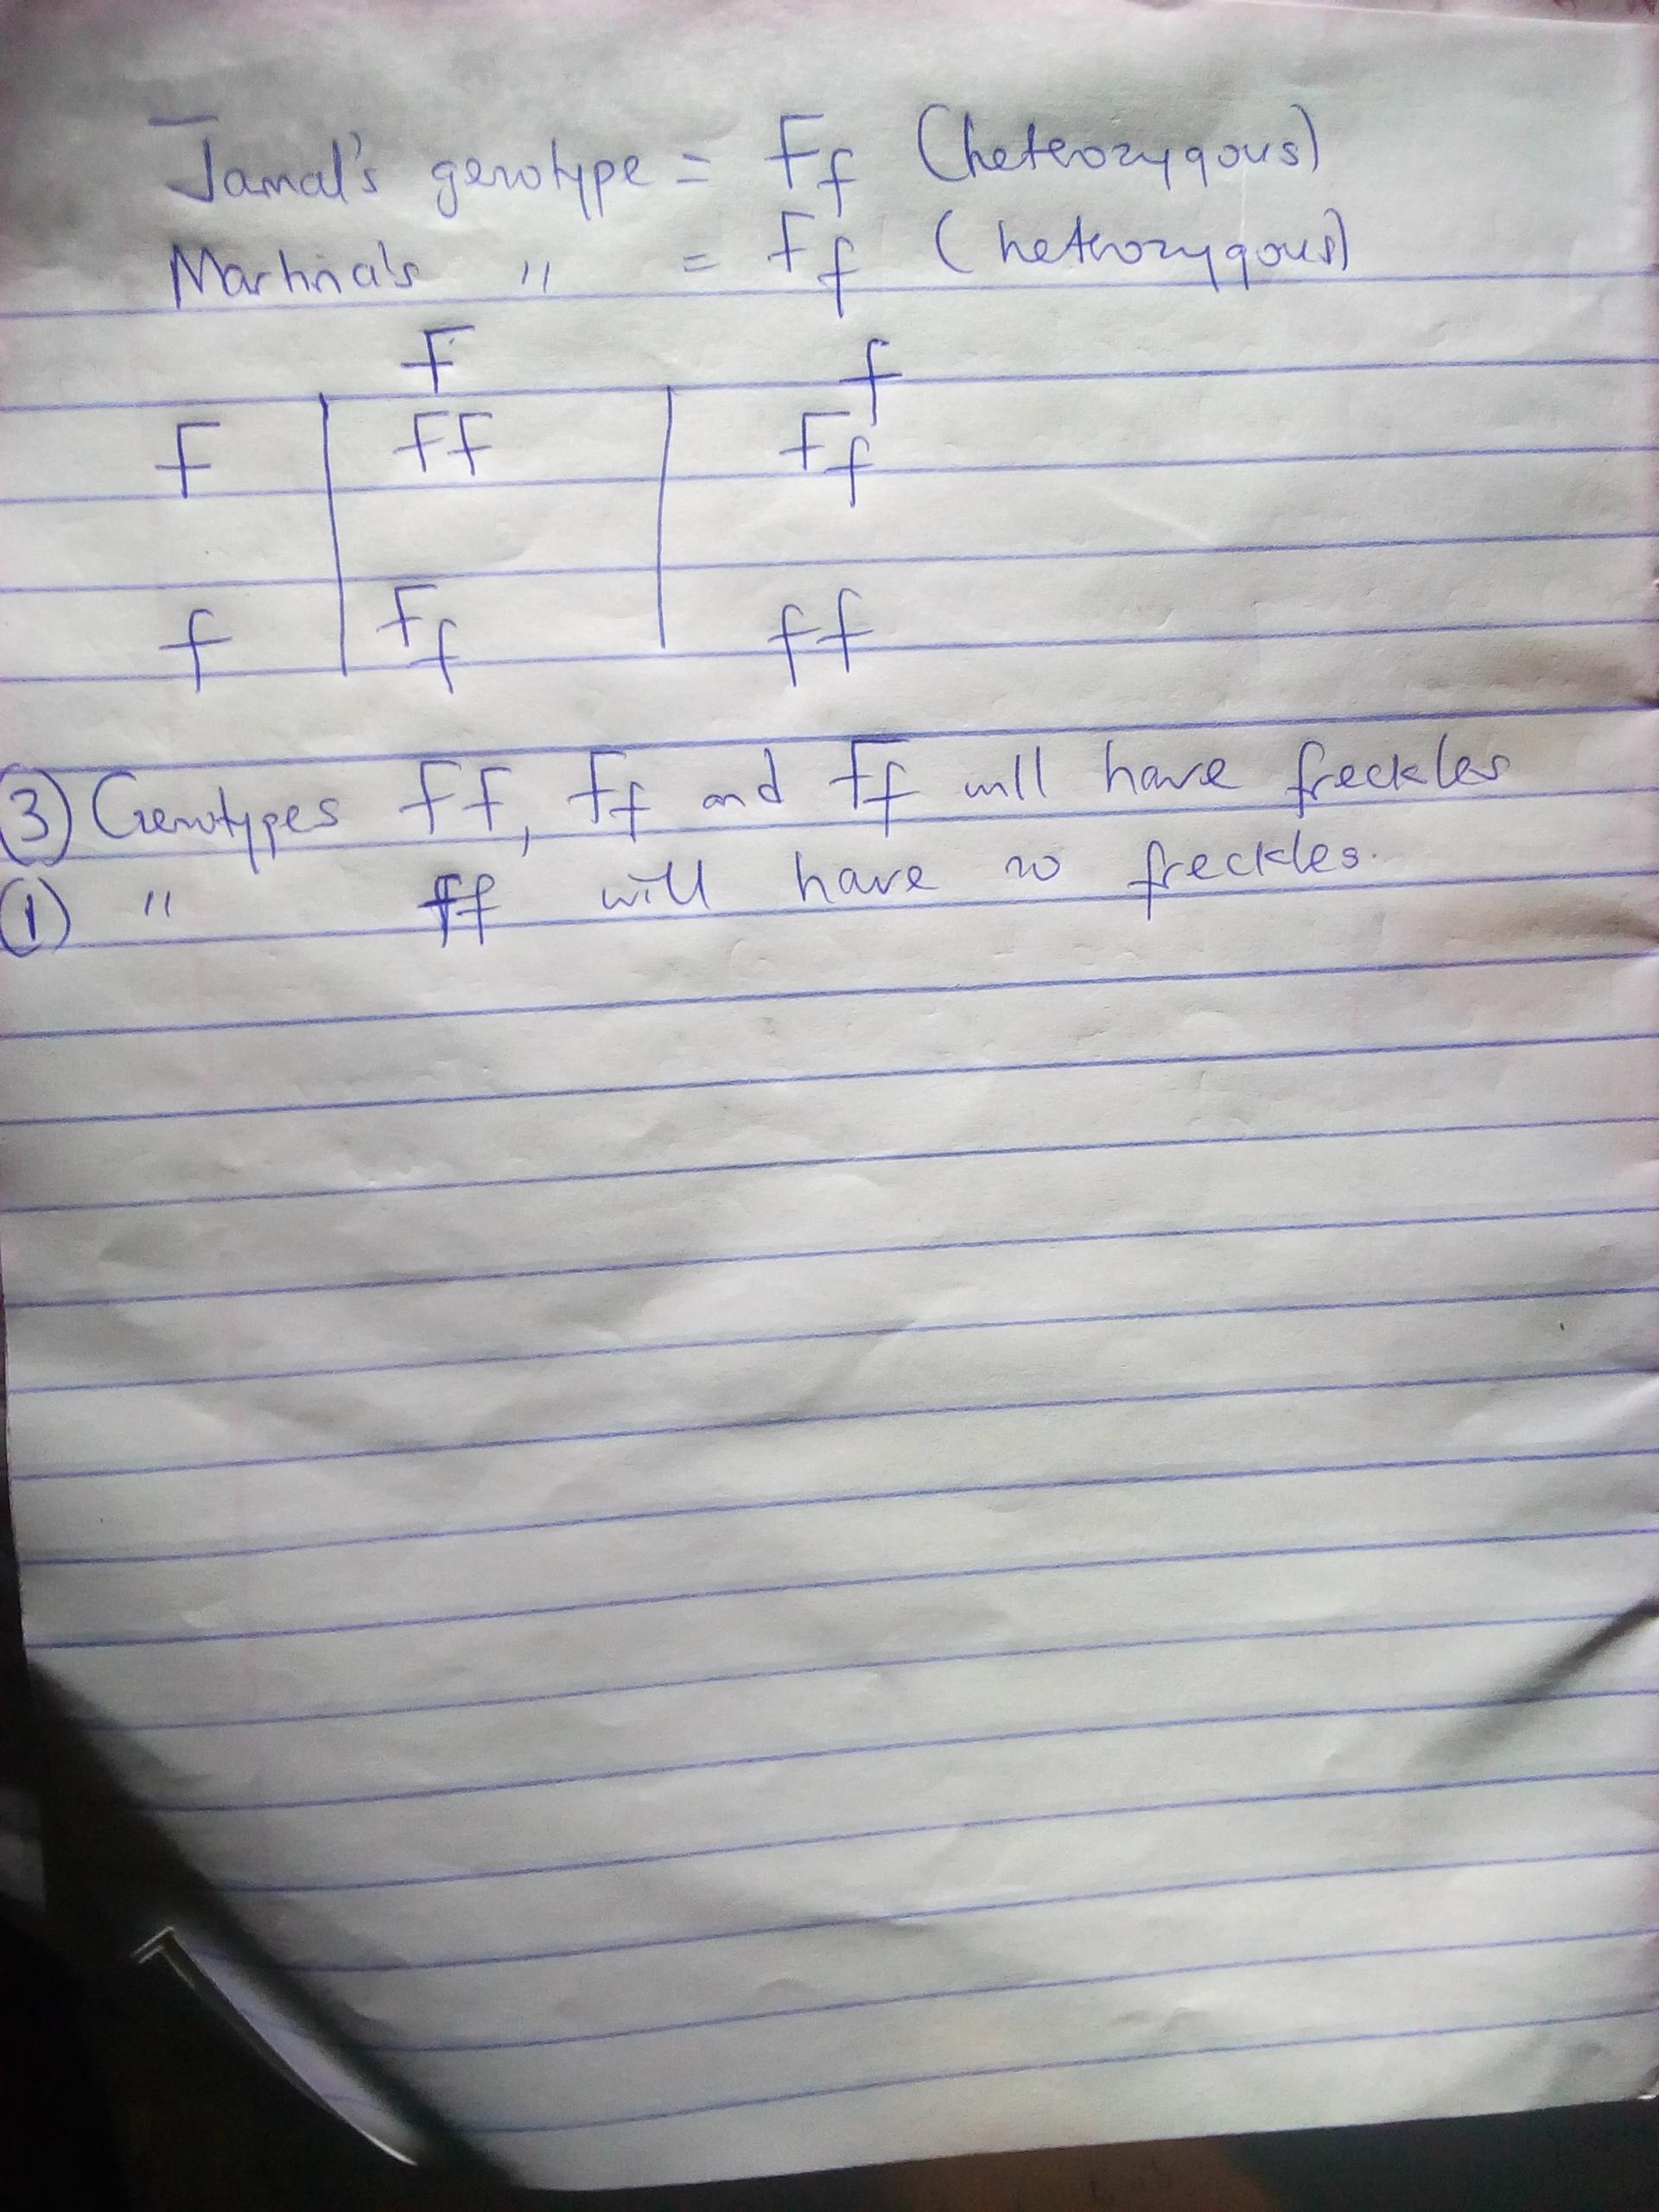 Jamal's genotype = Ff (heterozygous)
Martina's " = Ff (hetrozygous)
F f
F FF Ff
f Ff ff
(3) Genotypes FF, Ff and Ff will have freckles
(1) " ff will have no freckles.